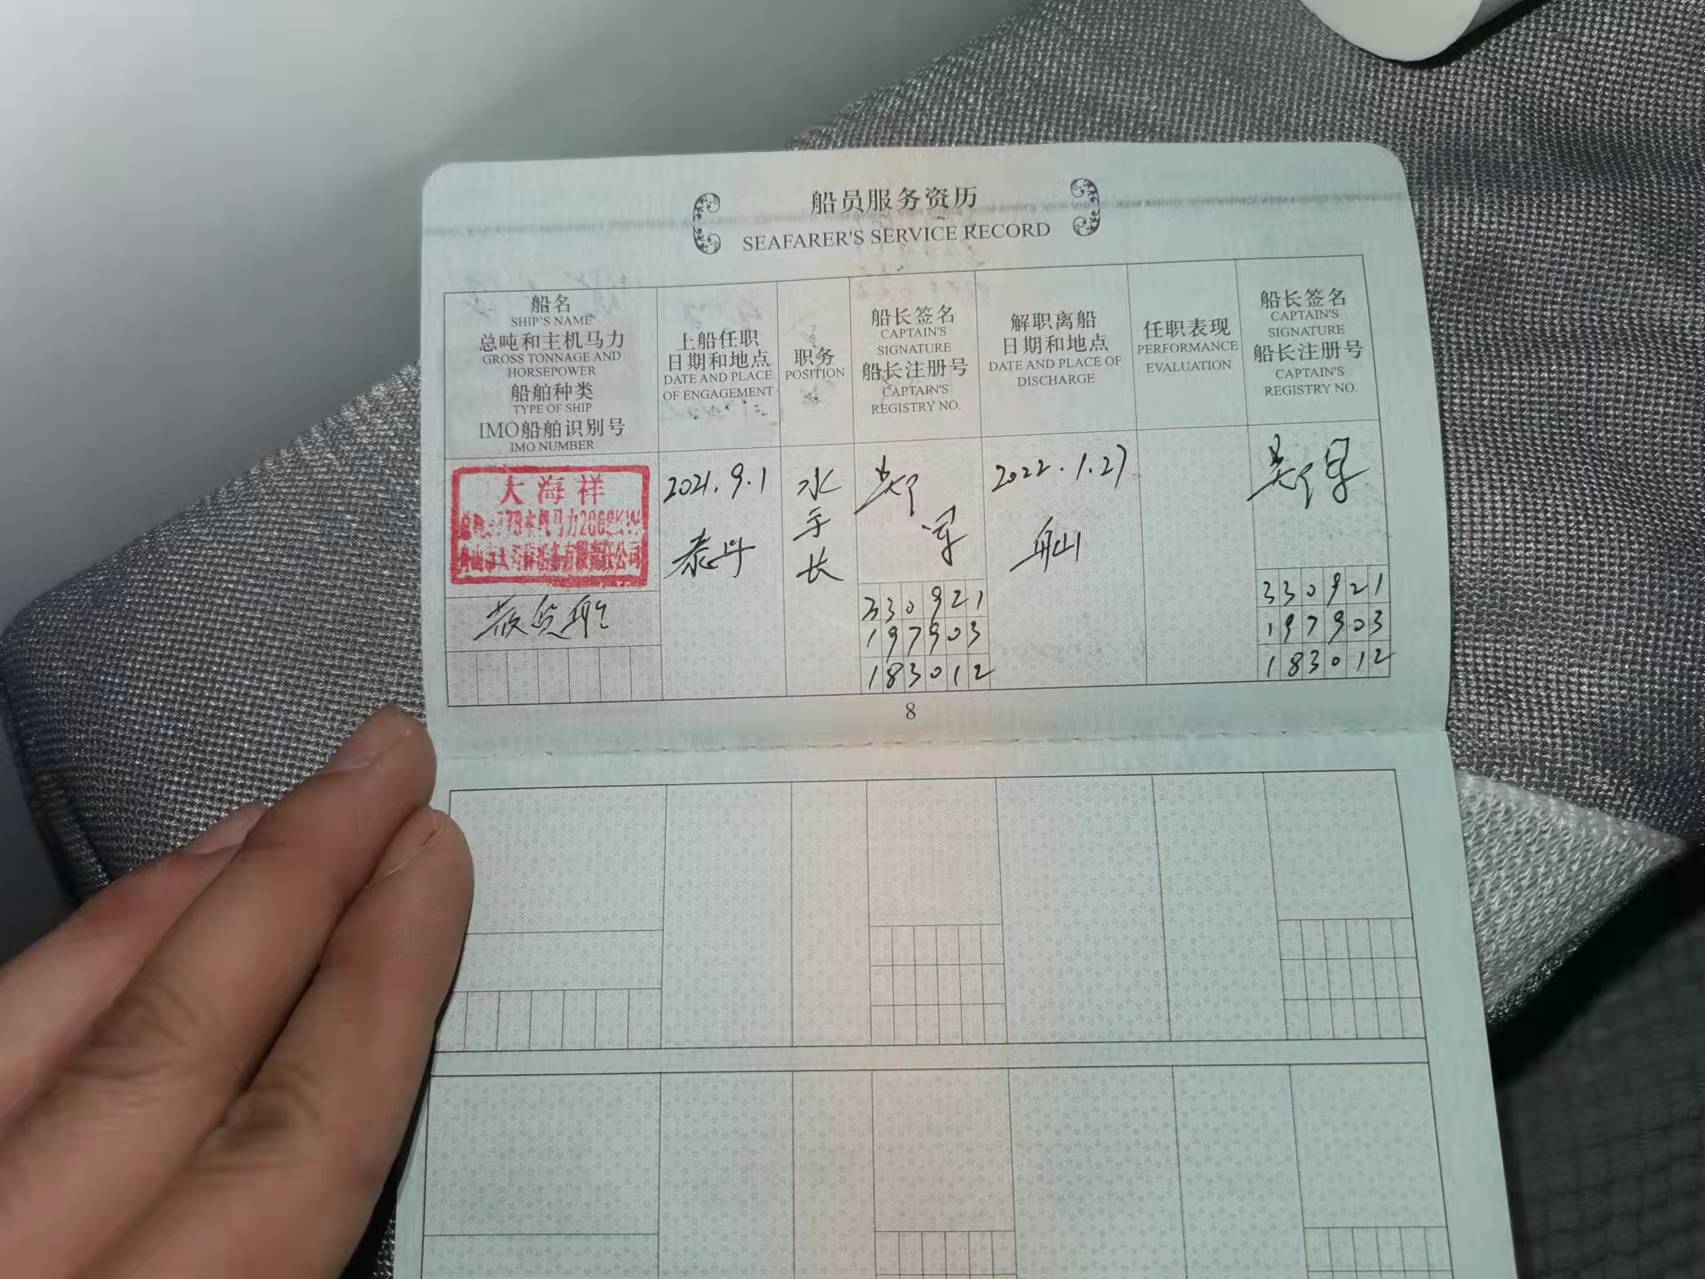 船员服务资历
SEAFARER'S SERVICE RECORD
船名
SHIP'S NAME
总吨和主机马力
GROSS TONNAGE AND
HORSEPOWER
船舶种类
TYPE OF SHIP
IMO船舶识别号
IMO NUMBER
上船任职
日期和地点
DATE AND PLACE
OF ENGAGEMENT
职务
POSITION
船长签名
CAPTAIN'S
SIGNATURE
船长注册号
CAPTAIN'S
REGISTRY NO.
解职离船
日期和地点
DATE AND PLACE OF
DISCHARGE
任职表现
PERFORMANCE
EVALUATION
船长签名
CAPTAIN'S
SIGNATURE
船长注册号
CAPTAIN'S
REGISTRY NO.
大海祥
马力
舟山市 有限责任公司
散货船
2021.9.1
水
手
长
330921
197903
183012
2022.1.27
舟山
330921
197903
183012
8